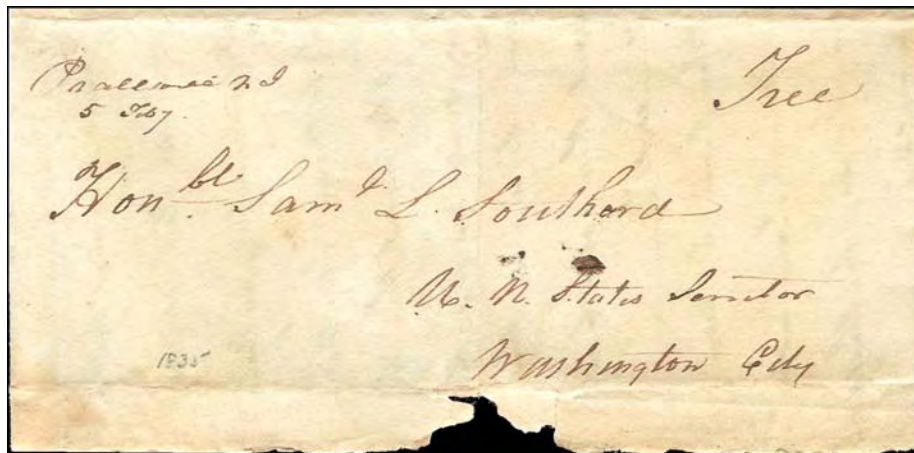 Prallsville N.J
5 Feby.
Free
Hon.ble Saml. L. Southard
U. N. States Senator
Washington City
1835